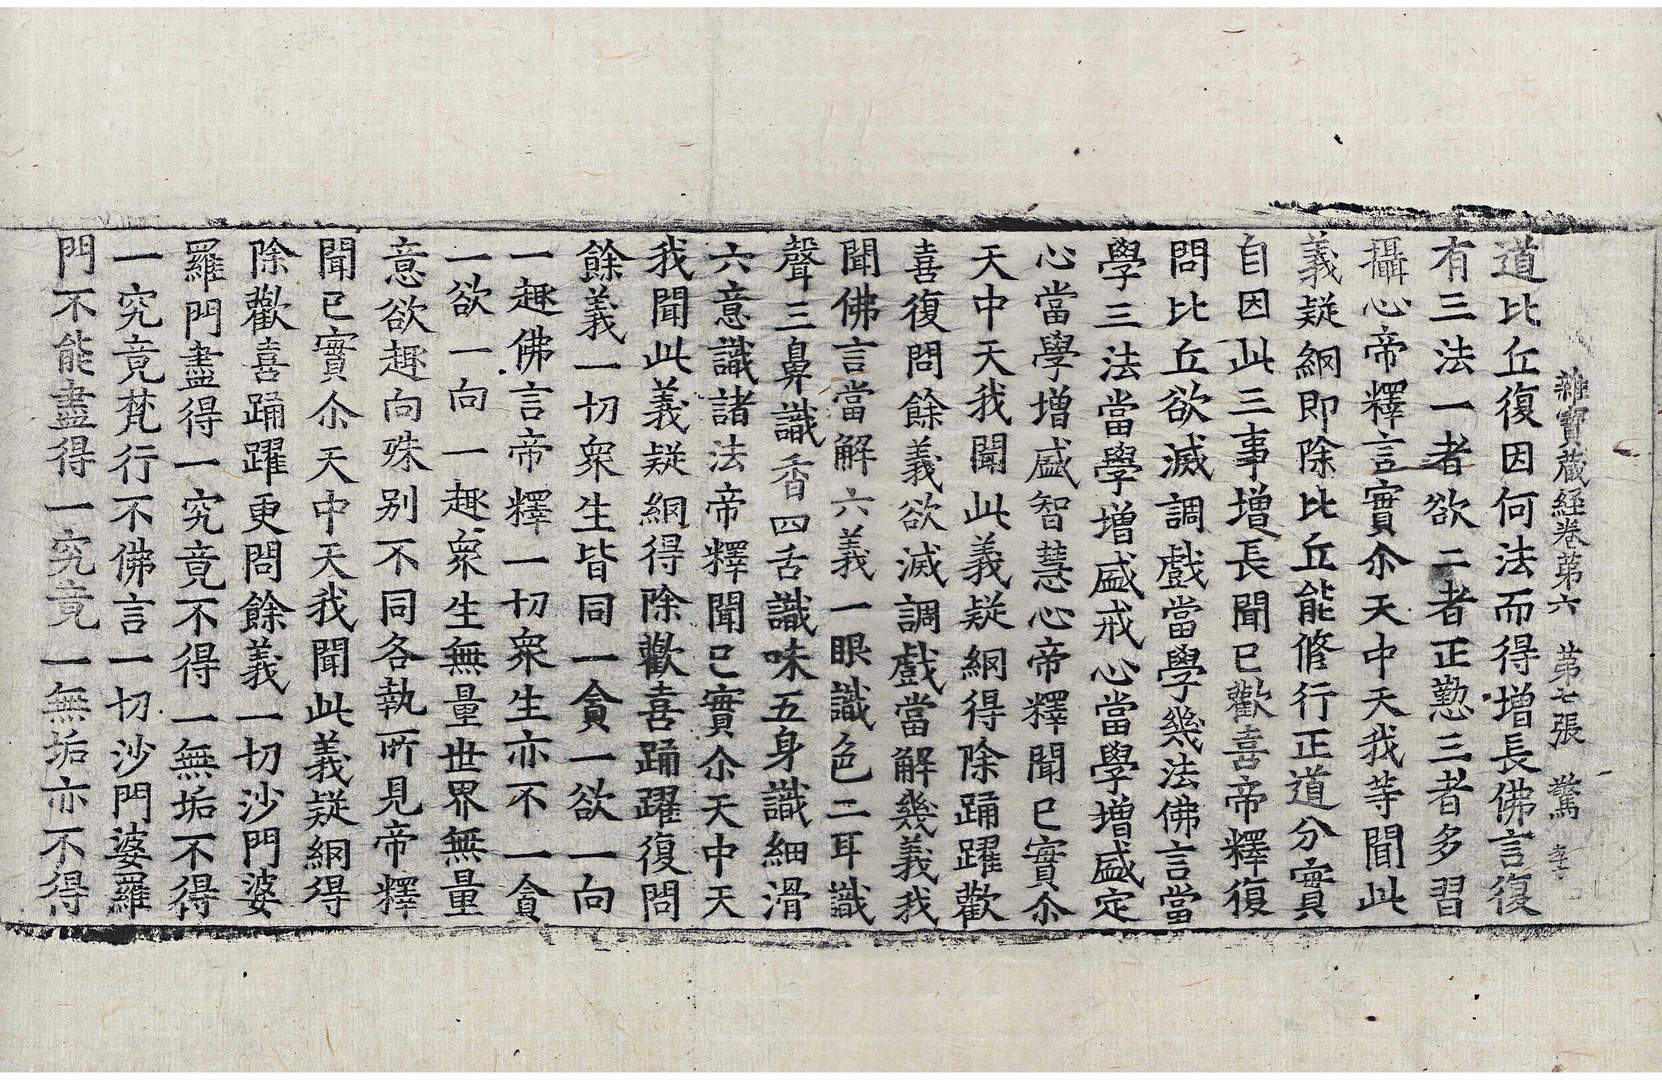 雜寶蔵経卷苐六　苐七張　驚
道比丘復因何法而得增長佛言復
有三法一者欲二者正懃三者多習
攝心帝釋言實尒天中天我等聞此
義疑網即除比丘能修行正道分實
自因此三事增長聞已歡喜帝釋復
問比丘欲滅調戲當學幾法佛言當
學三法當學增盛戒心當學增盛定
心當學增盛智慧心帝釋聞已實尒
天中天我聞此義疑網得除踊躍歡
喜復問餘義欲滅調戲當解幾義我
聞佛言當解六義一眼識色二耳識
聲三鼻識香四舌識味五身識細滑
六意識諸法帝釋聞已實尒天中天
我聞此義疑網得除歡喜踊躍復問
餘義一切衆生皆同一貪一欲一向
一趣佛言帝釋一切衆生亦不一貪
一欲一向一趣衆生無量世界無量
意欲趣向殊別不同各執所見帝釋
聞已實尒天中天我聞此義疑網得
除歡喜踊躍更問餘義一切沙門婆
羅門盡得一究竟不得一無垢不得
一究竟梵行不佛言一切沙門婆羅
門不能盡得一究竟一無垢亦不得